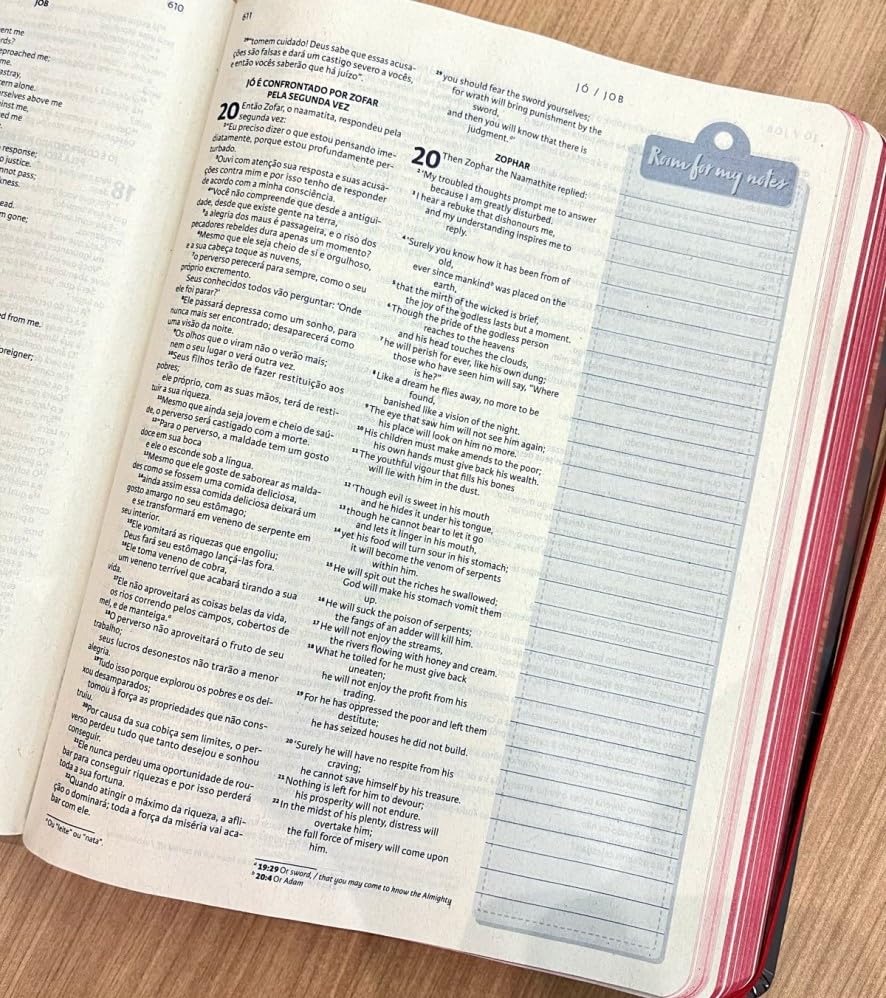 JOB
610
ent me
rds?
pproached me;
astray,
ern alone.
rselves above me
inst me,
ed me
response;
o justice.
nnot pass;
kness.
ead.
m gone;
ed from me.
oreigner;
611
JÓ / JOB
²⁹tomem cuidado! Deus sabe que essas acusa-
ções são falsas e dará um castigo severo a vocês,
e então vocês saberão que há juízo".
JÓ É CONFRONTADO POR ZOFAR
PELA SEGUNDA VEZ
20 Então Zofar, o naamatita, respondeu pela
segunda vez:
²"Eu preciso dizer o que estou pensando ime-
diatamente, porque estou profundamente per-
turbado.
³Ouvi com atenção sua resposta e suas acusa-
ções contra mim e por isso tenho de responder
de acordo com a minha consciência.
⁴"Você não compreende que desde a antigui-
dade, desde que existe gente na terra,
⁵a alegria dos maus é passageira, e o riso dos
pecadores rebeldes dura apenas um momento?
⁶Mesmo que ele seja cheio de si e orgulhoso,
e a sua cabeça toque as nuvens,
⁷o perverso perecerá para sempre, como o seu
próprio excremento.
Seus conhecidos todos vão perguntar: 'Onde
ele foi parar?'
⁸Ele passará depressa como um sonho, para
nunca mais ser encontrado; desaparecerá como
uma visão da noite.
⁹Os olhos que o viram não o verão mais;
nem o seu lugar o verá outra vez.
¹⁰Seus filhos terão de fazer restituição aos
pobres;
ele próprio, com as suas mãos, terá de resti-
tuir a sua riqueza.
¹¹Mesmo que ainda seja jovem e cheio de saú-
de, o perverso será castigado com a morte.
¹²"Para o perverso, a maldade tem um gosto
doce em sua boca
e ele o esconde sob a língua.
¹³Mesmo que ele goste de saborear as malda-
des como se fossem uma comida deliciosa,
¹⁴ainda assim essa comida deliciosa deixará um
gosto amargo no seu estômago;
e se transformará em veneno de serpente em
seu interior.
¹⁵Ele vomitará as riquezas que engoliu;
Deus fará seu estômago lançá-las fora.
¹⁶Ele toma veneno de cobra,
um veneno terrível que acabará tirando a sua
vida.
¹⁷Ele não aproveitará as coisas belas da vida,
os rios correndo pelos campos, cobertos de
mel, e de manteiga.ᵃ
¹⁸O perverso não aproveitará o fruto de seu
trabalho;
seus lucros desonestos não trarão a menor
alegria.
¹⁹Tudo isso porque explorou os pobres e os dei-
xou desamparados;
tomou à força as propriedades que não cons-
truiu.
²⁰Por causa da sua cobiça sem limites, o per-
verso perdeu tudo que tanto desejou e sonhou
conseguir.
²¹Ele nunca perdeu uma oportunidade de rou-
bar para conseguir riquezas e por isso perderá
toda a sua fortuna.
²²Quando atingir o máximo da riqueza, a afli-
ção o dominará; toda a força da miséria vai aca-
bar com ele.
ᵃOu "leite" ou "nata".
²⁹you should fear the sword yourselves;
for wrath will bring punishment by the
sword,
and then you will know that there is
judgment.ᵃ'
ZOPHAR
20 Then Zophar the Naamathite replied:
²'My troubled thoughts prompt me to answer
because I am greatly disturbed.
³I hear a rebuke that dishonours me,
and my understanding inspires me to
reply.
⁴'Surely you know how it has been from of
old,
ever since mankindᵇ was placed on the
earth,
⁵that the mirth of the wicked is brief,
the joy of the godless lasts but a moment.
⁶Though the pride of the godless person
reaches to the heavens
and his head touches the clouds,
⁷he will perish for ever, like his own dung;
those who have seen him will say, "Where
is he?"
⁸Like a dream he flies away, no more to be
found,
banished like a vision of the night.
⁹The eye that saw him will not see him again;
his place will look on him no more.
¹⁰His children must make amends to the poor;
his own hands must give back his wealth.
¹¹The youthful vigour that fills his bones
will lie with him in the dust.
¹²'Though evil is sweet in his mouth
and he hides it under his tongue,
¹³though he cannot bear to let it go
and lets it linger in his mouth,
¹⁴yet his food will turn sour in his stomach;
it will become the venom of serpents
within him.
¹⁵He will spit out the riches he swallowed;
God will make his stomach vomit them
up.
¹⁶He will suck the poison of serpents;
the fangs of an adder will kill him.
¹⁷He will not enjoy the streams,
the rivers flowing with honey and cream.
¹⁸What he toiled for he must give back
uneaten;
he will not enjoy the profit from his
trading.
¹⁹For he has oppressed the poor and left them
destitute;
he has seized houses he did not build.
²⁰'Surely he will have no respite from his
craving;
he cannot save himself by his treasure.
²¹Nothing is left for him to devour;
his prosperity will not endure.
²²In the midst of his plenty, distress will
overtake him;
the full force of misery will come upon
him.
ᵃ 19:29 Or sword, / that you may come to know the Almighty
ᵇ 20:4 Or Adam
Room for my notes